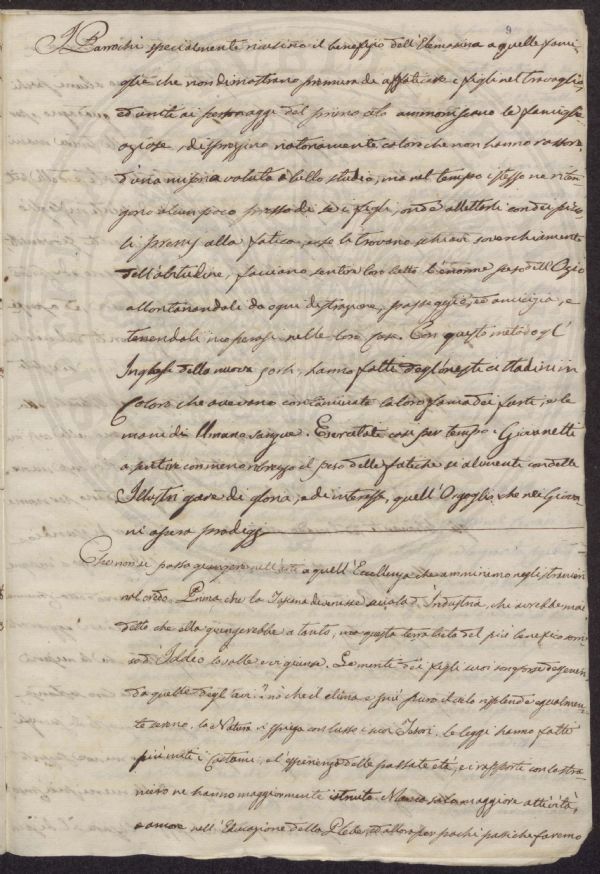 9
I Parrochi specialmente ricusino il benefizio dell'Elemosina a quelle fami-
glie che non dimostrano premura de affaticare i figli nel travaglio,
ed uniti ai personaggi del primo ceto ammoniscano le famiglie
oziose, disprezzino notoriamente coloro che non hanno rossore
d'una miseria voluta bello studio, ma nel tempo istesso ne
gono alcun poco presso di se i figli, onde allettarli con dei picco-
li premj alla fatica, e se li trovano schiavi soverchiamente
dell'abitudine, facciano sentire loro tutto l'enorme peso dell'Ozio
allontanandoli da ogni distrazione, passeggio, ed amicizia, e
tenendoli inoperosi nelle loro case. Con questo metodo gl'
Inglesi della nuova hanno fatti degl'onesti cittadini in
Coloro che avevano contaminate la loro fama dei furti, e le
mani di Umano sangue. Esercitati così per tempo i Giovanetti
a portare con meno ribrezzo il peso delle fatiche si alimenti con delle
Illustri gare di gloria, e di interesse, quell'Orgoglio che nei Giova-
ni opera prodigj
Che non si possa giungere nell'arti a quell'Eccellenza che ammiriamo negli stranieri
nol credo. Prima che la Toscana divenisse avola Industria, chi avrebbe mai
detto che ella giungerebbe a tanto, ma questa terra lieta del più benefico sorri-
so d'Iddio lo volle e vi giunse. Le menti dei figli suoi son forse degeneri
da quelle degl'avi? nò che il clima è più puro il cielo risplende egualmen-
te sereno, la Natura vi spiega con lusso i suoi Tesori, le leggi hanno fatti
più miti i Costumi, e l'esperienza delle passate età, e i rapporti con lo stra-
niero ne hanno maggiormente istruito. Manca solo maggiore attività,
e amore nell'Educazione della Plebe, ed allora per pochi passi che faremo